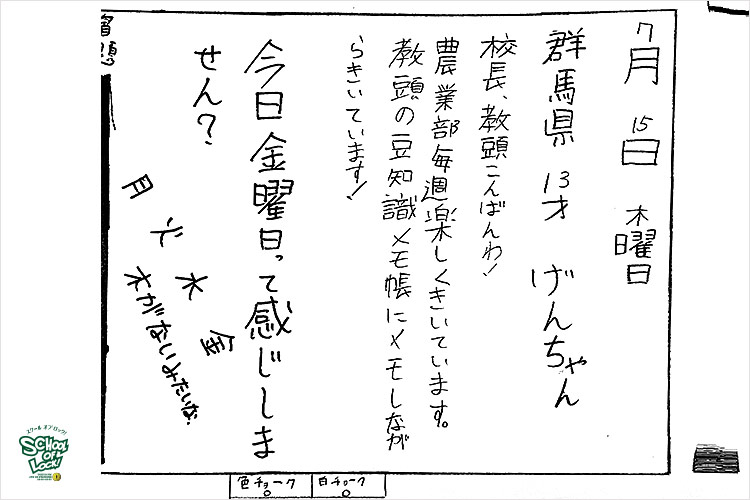 7月15日木曜日
群馬県 13才 げんちゃん
校長、教頭こんばんわ!
農業部毎週楽しくきいています。
教頭の豆知識メモ帳にメモしなが
らきいています!
今日金曜日って感じしま
せん?
月火水金
木がないみたいな
色チョーク
白チョーク
スクール オブ ロック!
SCHOOL
OF
LOCK!